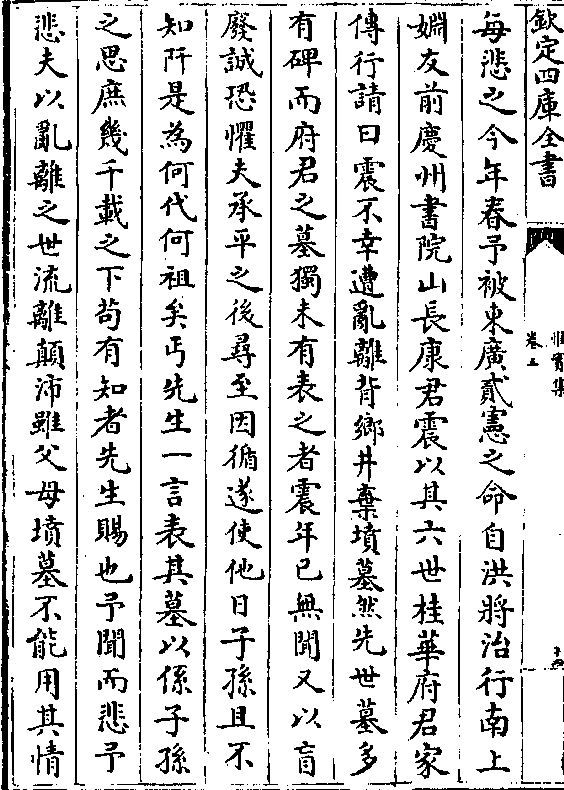 欽定四庫全書
惟實集
卷三
十四
每悲之今年春予被東廣貳憲之命自洪將治行南上
婣友前慶州書院山長康君震以其六世桂華府君家
傳行請曰震不幸遭亂離背鄉井棄墳墓然先世墓多
有碑而府君之墓獨未有表之者震年已無聞又以盲
廢誠恐懼夫承平之後尋至因循遂使他日子孫且不
知阡是為何代何祖矣丐先生一言表其墓以係子孫
之思庶幾千載之下苟有知者先生賜也予聞而悲予
悲夫以亂離之世流離顛沛雖父母墳墓不能用其情